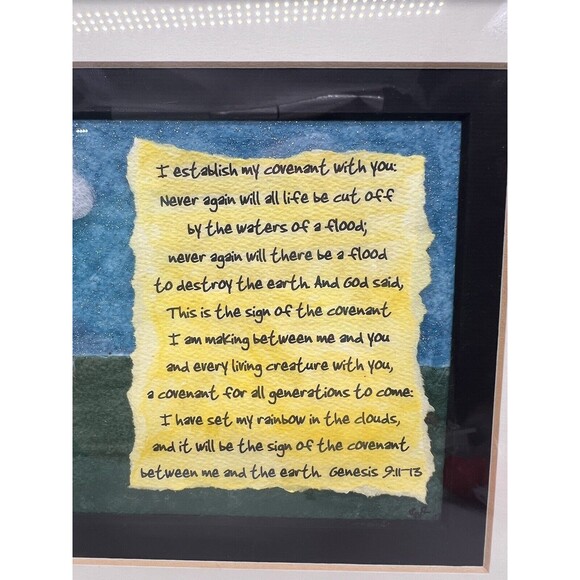 I establish my covenant with you:
Never again will all life be cut off
by the waters of a flood;
never again will there be a flood
to destroy the earth. And God said,
This is the sign of the covenant
I am making between me and you
and every living creature with you,
a covenant for all generations to come:
I have set my rainbow in the clouds,
and it will be the sign of the covenant
between me and the earth. Genesis 9:11-13